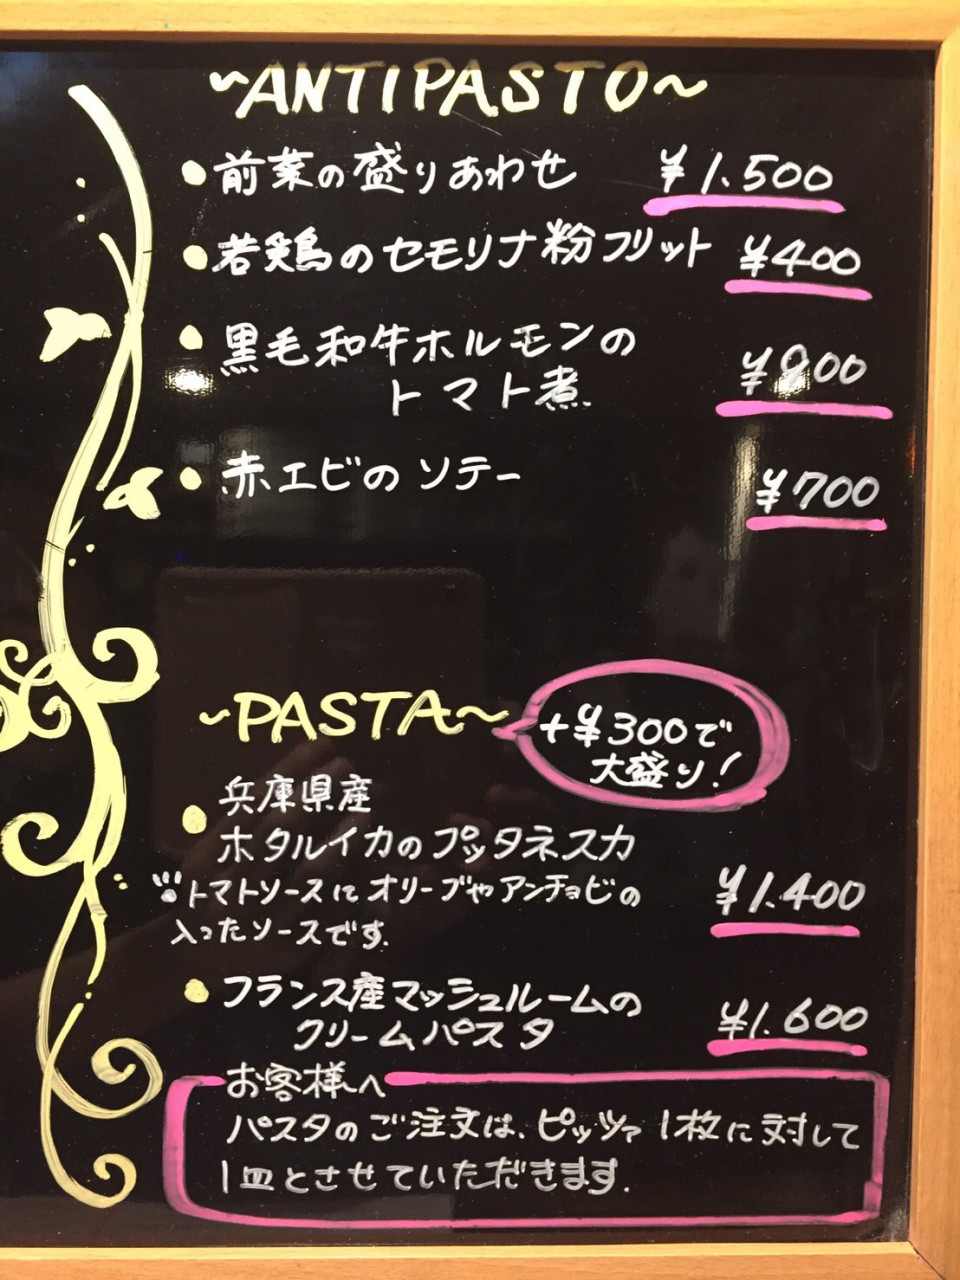 ~ANTIPASTO~
・前菜の盛りあわせ ¥1.500
・若鶏のセモリナ粉フリット ¥400
・黒毛和牛ホルモンの
トマト煮 ¥900
・赤エビのソテー ¥700
~PASTA~
+¥300で
大盛り!
・兵庫県産
ホタルイカのプッタネスカ
トマトソースにオリーブやアンチョビの
入ったソースです. ¥1.400
・フランス産マッシュルームの
クリームパスタ ¥1.600
お客様へ
パスタのご注文は、ピッツァ1枚に対して
1皿とさせていただきます.